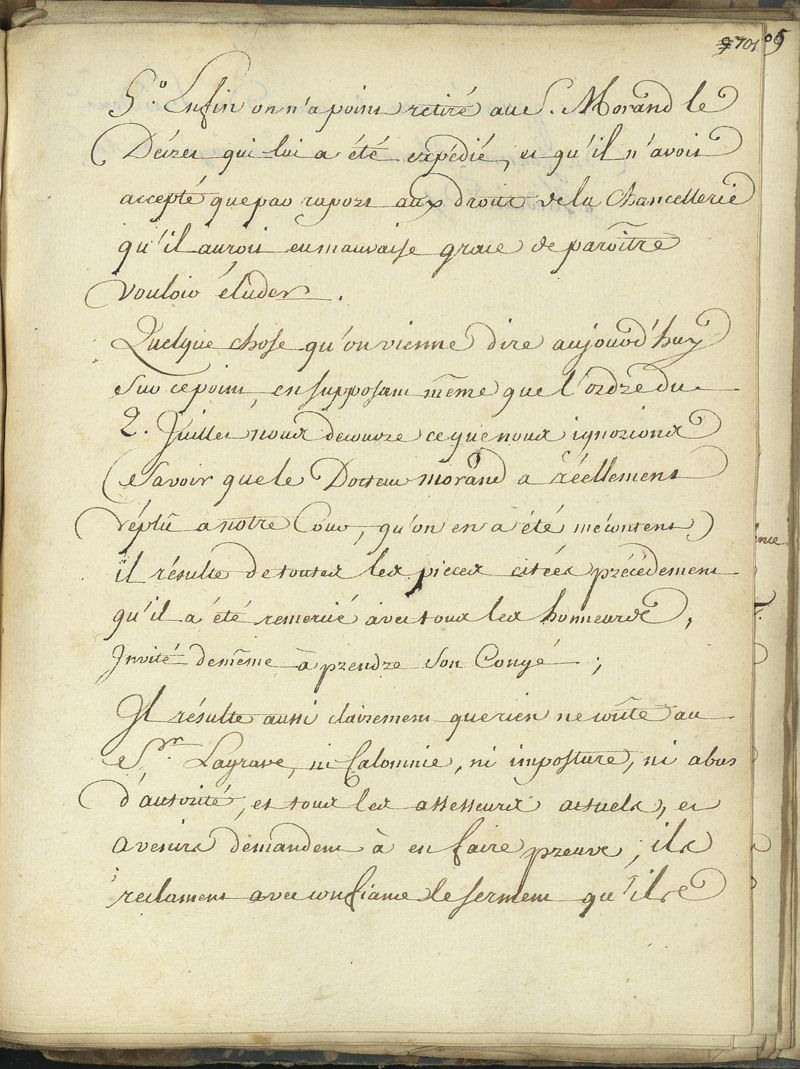 5.º Enfin on n'a point retiré au S. Morand le
Décret qui lui a été expédié, et qu'il n'avoit
accepté que par raport aux droits de la Chancellerie
qu'il auroit eu mauvaise grace de paroître
vouloir éluder.
Quelque chose qu'on vienne dire aujourd'huy
sur ce point, en supposant même que l'ordre du
2. Juillet nous decouvre ce que nous ignorions
(savoir que le Docteur morand a réellement
déplû a notre Cour, qu'on en a été mécontent)
il résulte de toutes les pieces citées précédement
qu'il a été remercié avec tous les honneurs,
Invité de même à prendre son Congé;
Il résulte aussi clairement que rien ne coûte au
Sr. Lagrave, ni Calomnie, ni imposture, ni abus
d'autorité, et tous les assesseurs actuels, et
avenirs demandent à en faire preuve, ils
reclament avec confiance le serment qu'ils